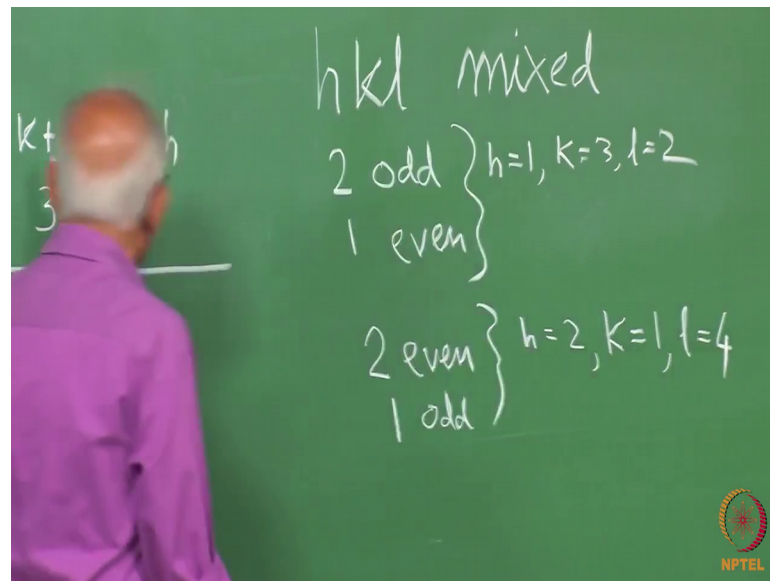 hkl mixed
k+ h
3
2 odd
1 even
h=1, K=3, l=2
2 even
1 odd
h=2, K=1, l=4
NPTEL